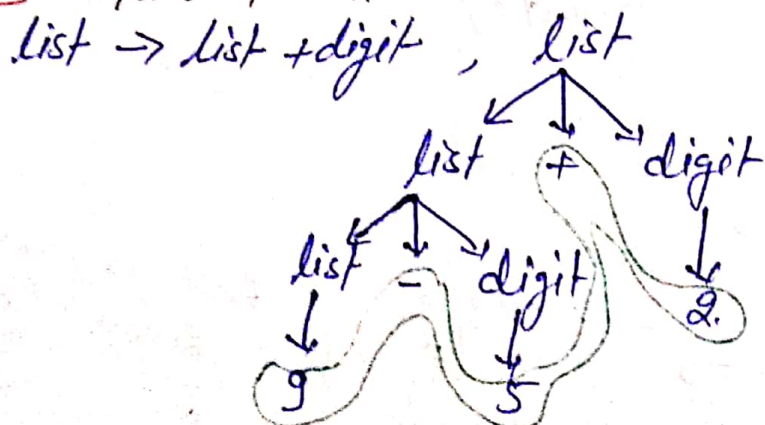 list -> list + digit , list
list + digit
list - digit 2.
9 5